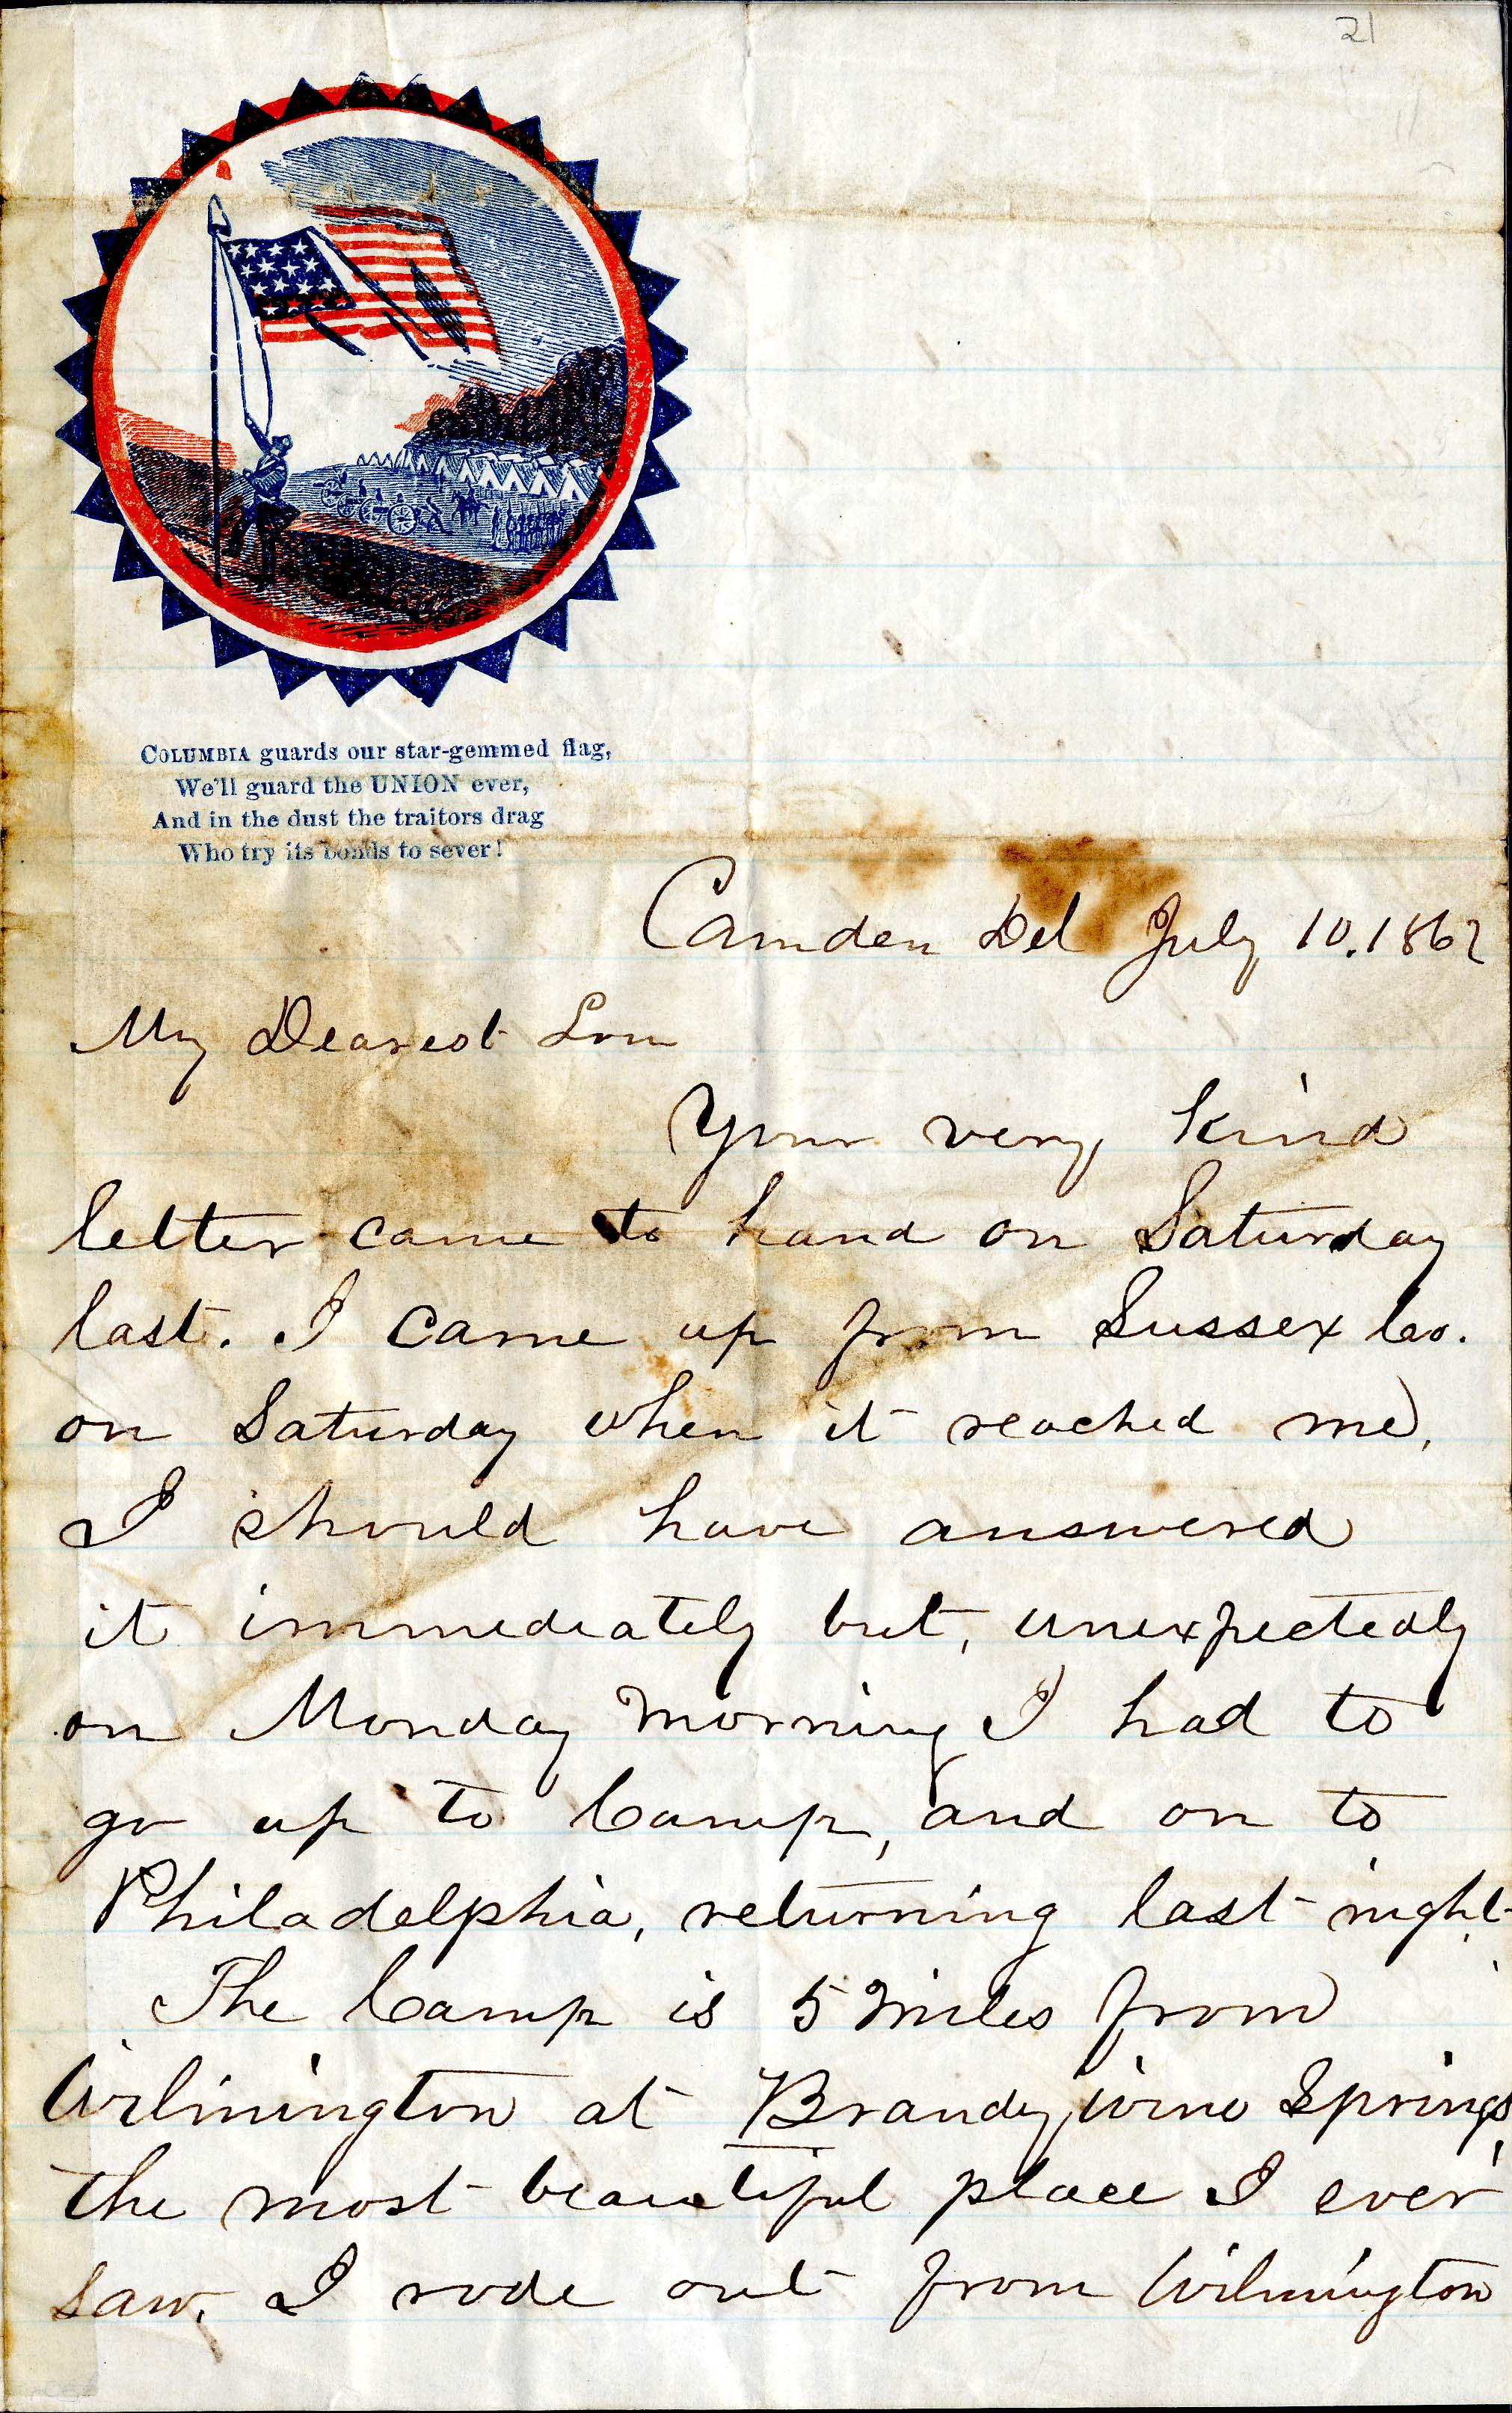 21
COLUMBIA guards our star-gemmed flag,
We'll guard the UNION ever,
And in the dust the traitors drag
Who try its bonds to sever!
Camden Del July 10. 1862
My Dearest Lou
Your very kind
letter came to hand on Saturday
last. I came up from Sussex Co.
on Saturday when it reached me,
I should have answered
it immediately but, unexpectedly
on Monday morning I had to
go up to Camp, and on to
Philadelphia, returning last night.
The Camp is 5 miles from
Wilmington at Brandywine Springs,
the most beautiful place I ever
saw. I rode out from Wilmington